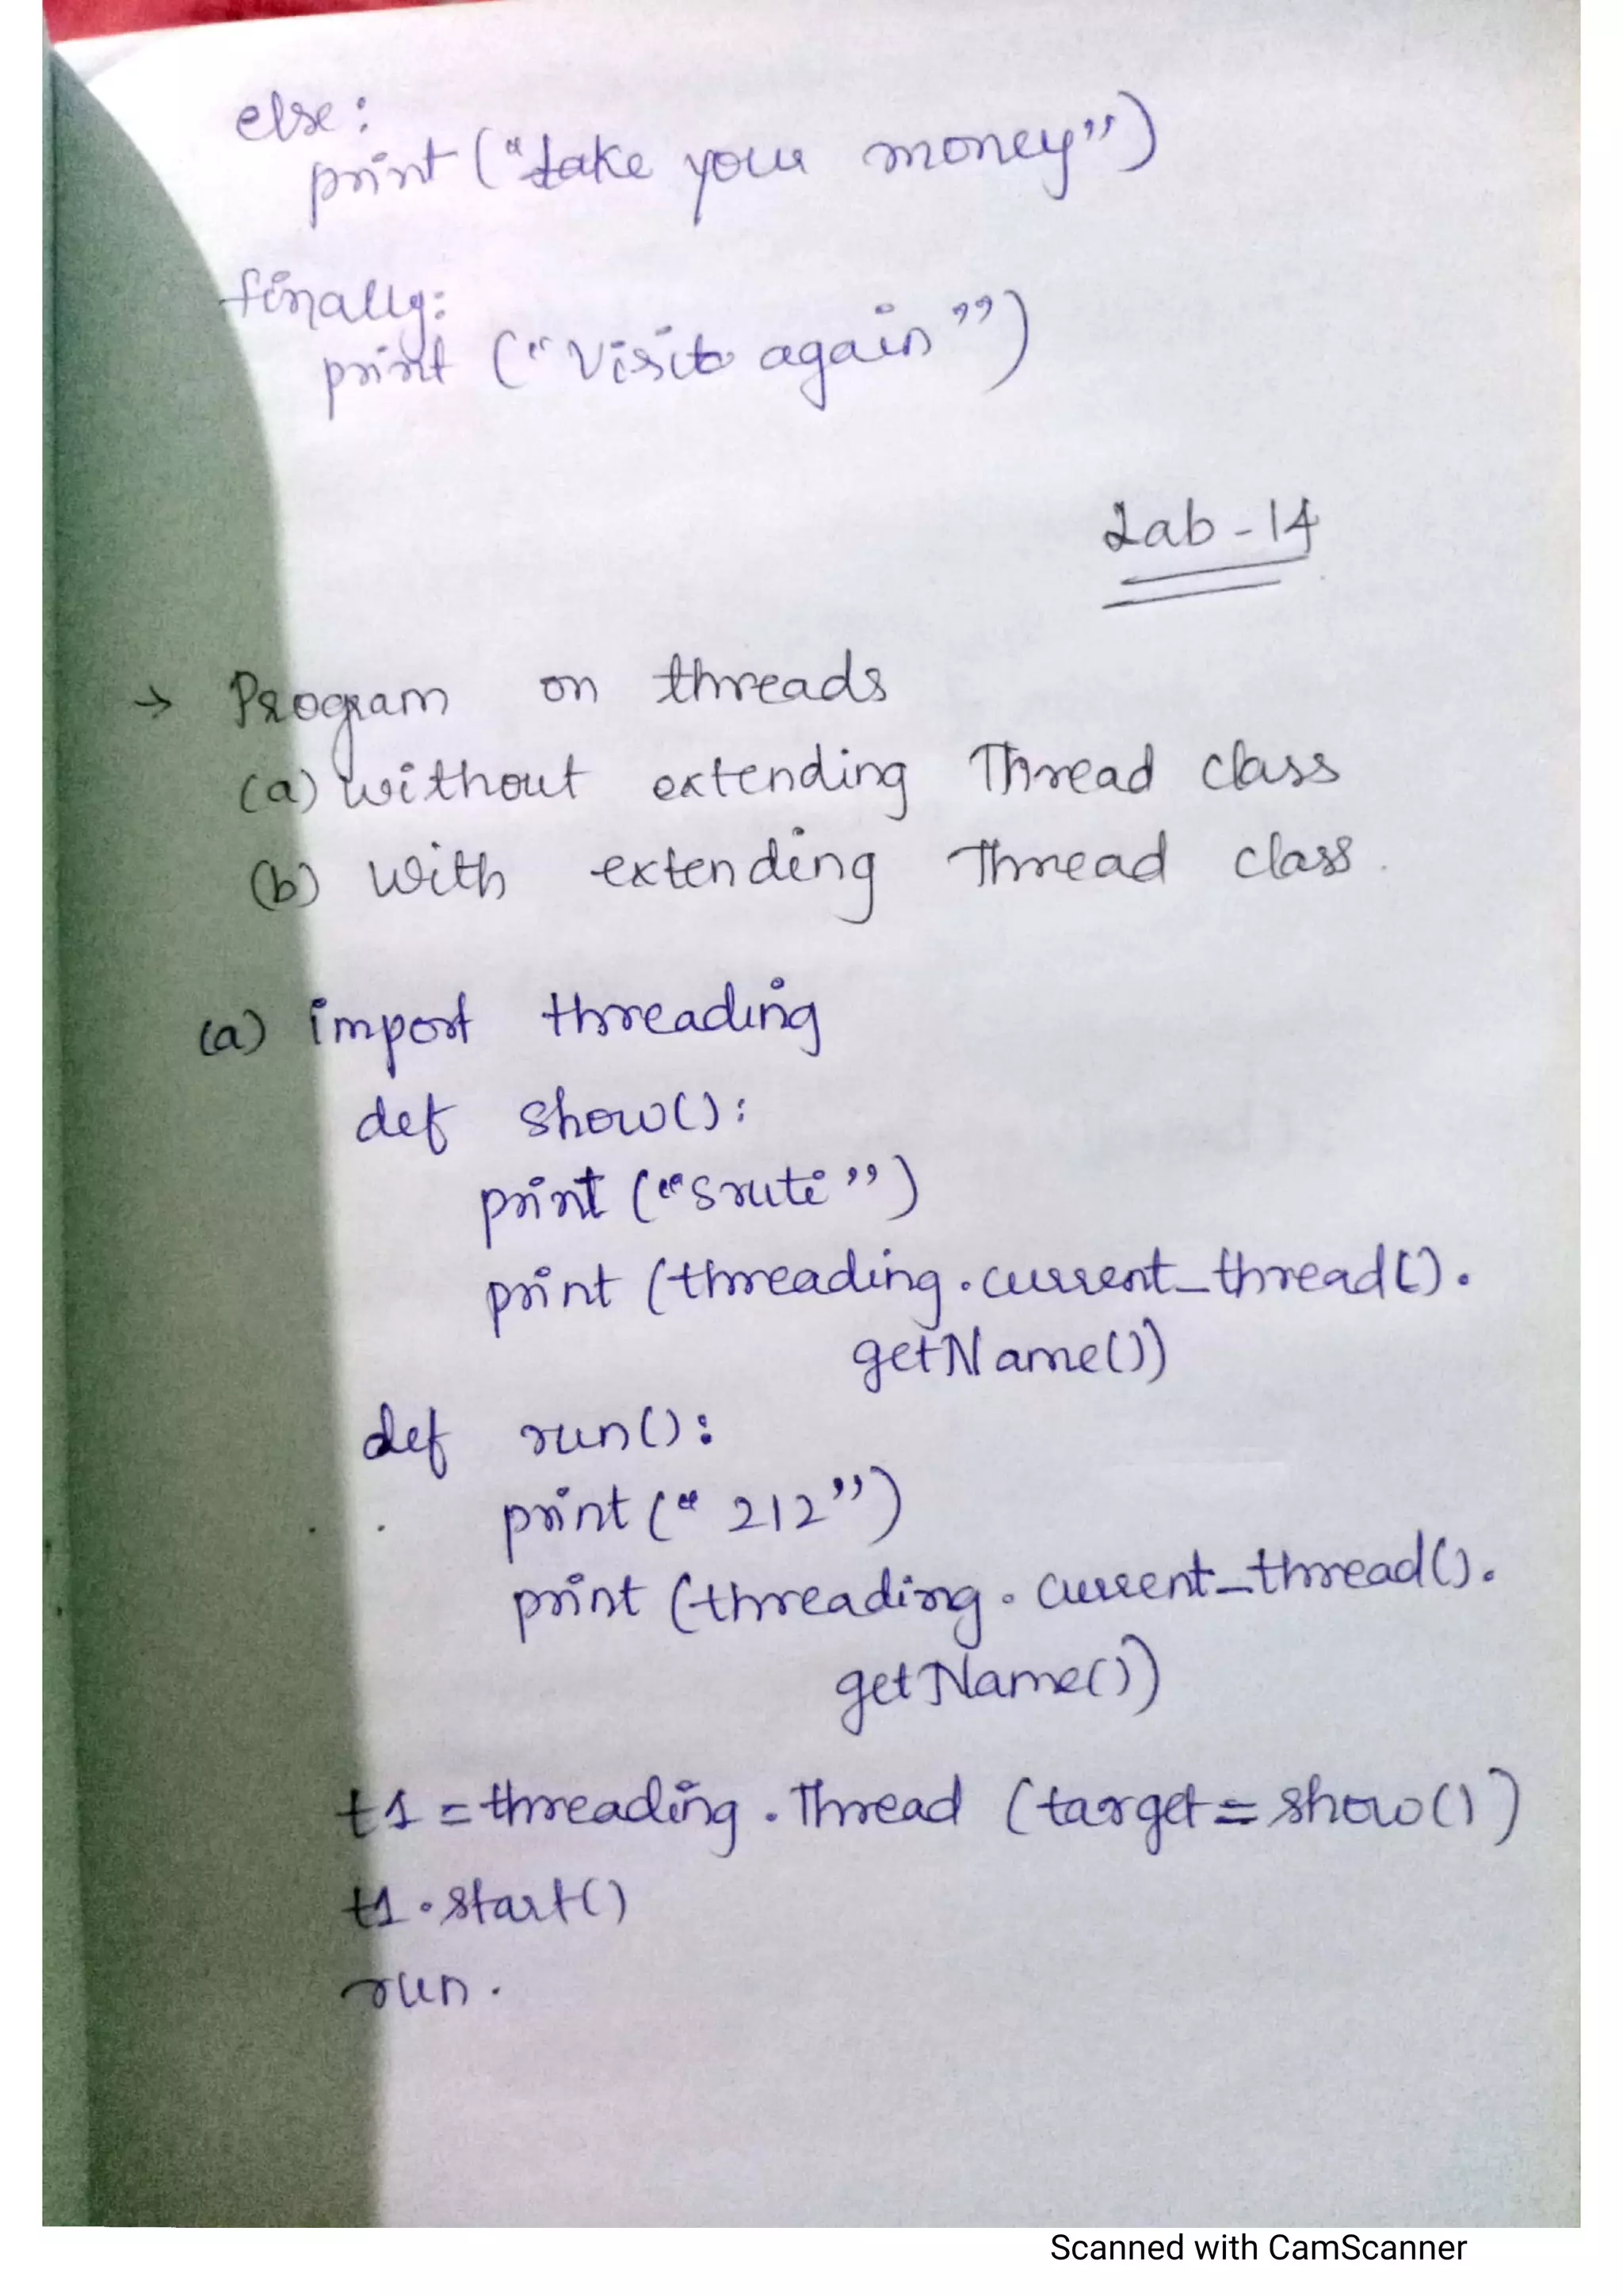 else:
print ("take your money")
finally:
print ("Visit again")
Lab-14
→ Program on threads
(a) without extending Thread class
(b) With extending Thread class.
(a) import threading
def show():
print ("sruti")
print (threading.current_thread().
getName())
def run():
print (" 212")
print (threading.current_thread().
getName())
t1 = threading.Thread (target = show())
t1.start()
run.
Scanned with CamScanner